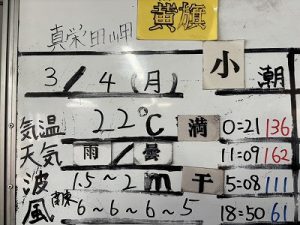 黄旗
真栄田岬
3/4(月) 小潮
気温 22℃ 満 0:21 136
天気 雨/曇 11:09 162
波 1.5～2m 干 5:08 111
風 南東 6～6～6～5 18:50 61